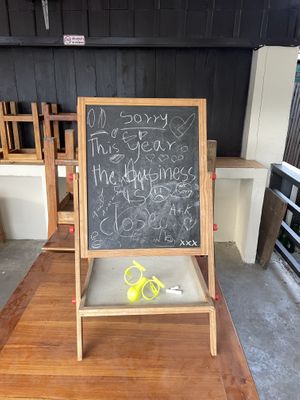 Sorry
This Year
the business
is
closed
A+K
xxx